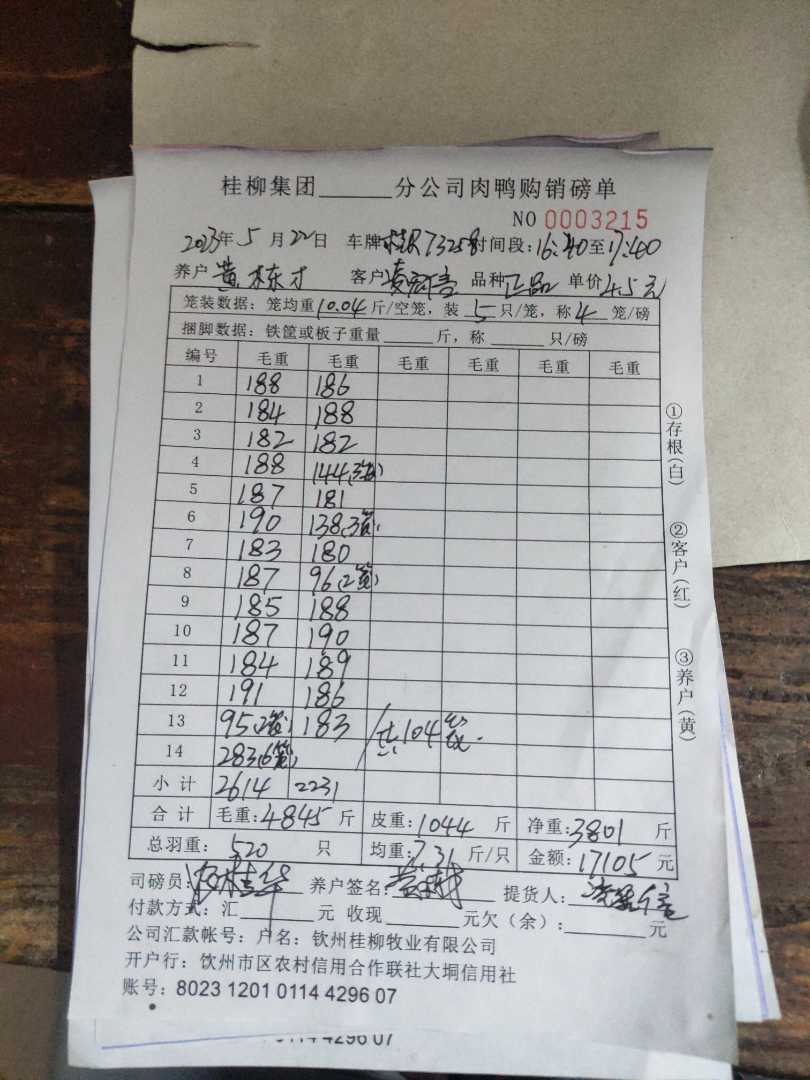 桂柳集团______分公司肉鸭购销磅单
NO 0003215
2023年 5 月 22日 车牌 73258 时间段: 16:40至17:40
养户 黄栋才 客户 品种 正品 单价 4.5元
笼装数据: 笼均重 10.04 斤/空笼, 装 5 只/笼, 称 4 笼/磅
捆脚数据: 铁筐或板子重量______斤, 称______只/磅
编号 毛重 毛重 毛重 毛重 毛重 毛重
1 188 186
2 184 188
3 182 182
4 188 144
5 187 181
6 190 138(3笼)
7 183 180
8 187 96(2笼)
9 185 188
10 187 190
11 184 189
12 191 186
13 95(2笼) 183 共104笼.
14 283(6笼)
小计 2614 2231
合计 毛重: 4845 斤 皮重: 1044 斤 净重: 3801 斤
总羽重: 520 只 均重: 7.31 斤/只 金额: 17105 元
司磅员: 养户签名: 提货人:
付款方式: 汇______元 收现______元欠(余): ______元
公司汇款帐号: 户名: 钦州桂柳牧业有限公司
开户行: 钦州市区农村信用合作联社大垌信用社
账号: 8023 1201 0114 4296 07
①存根(白)
②客户(红)
③养户(黄)
0114 4296 07